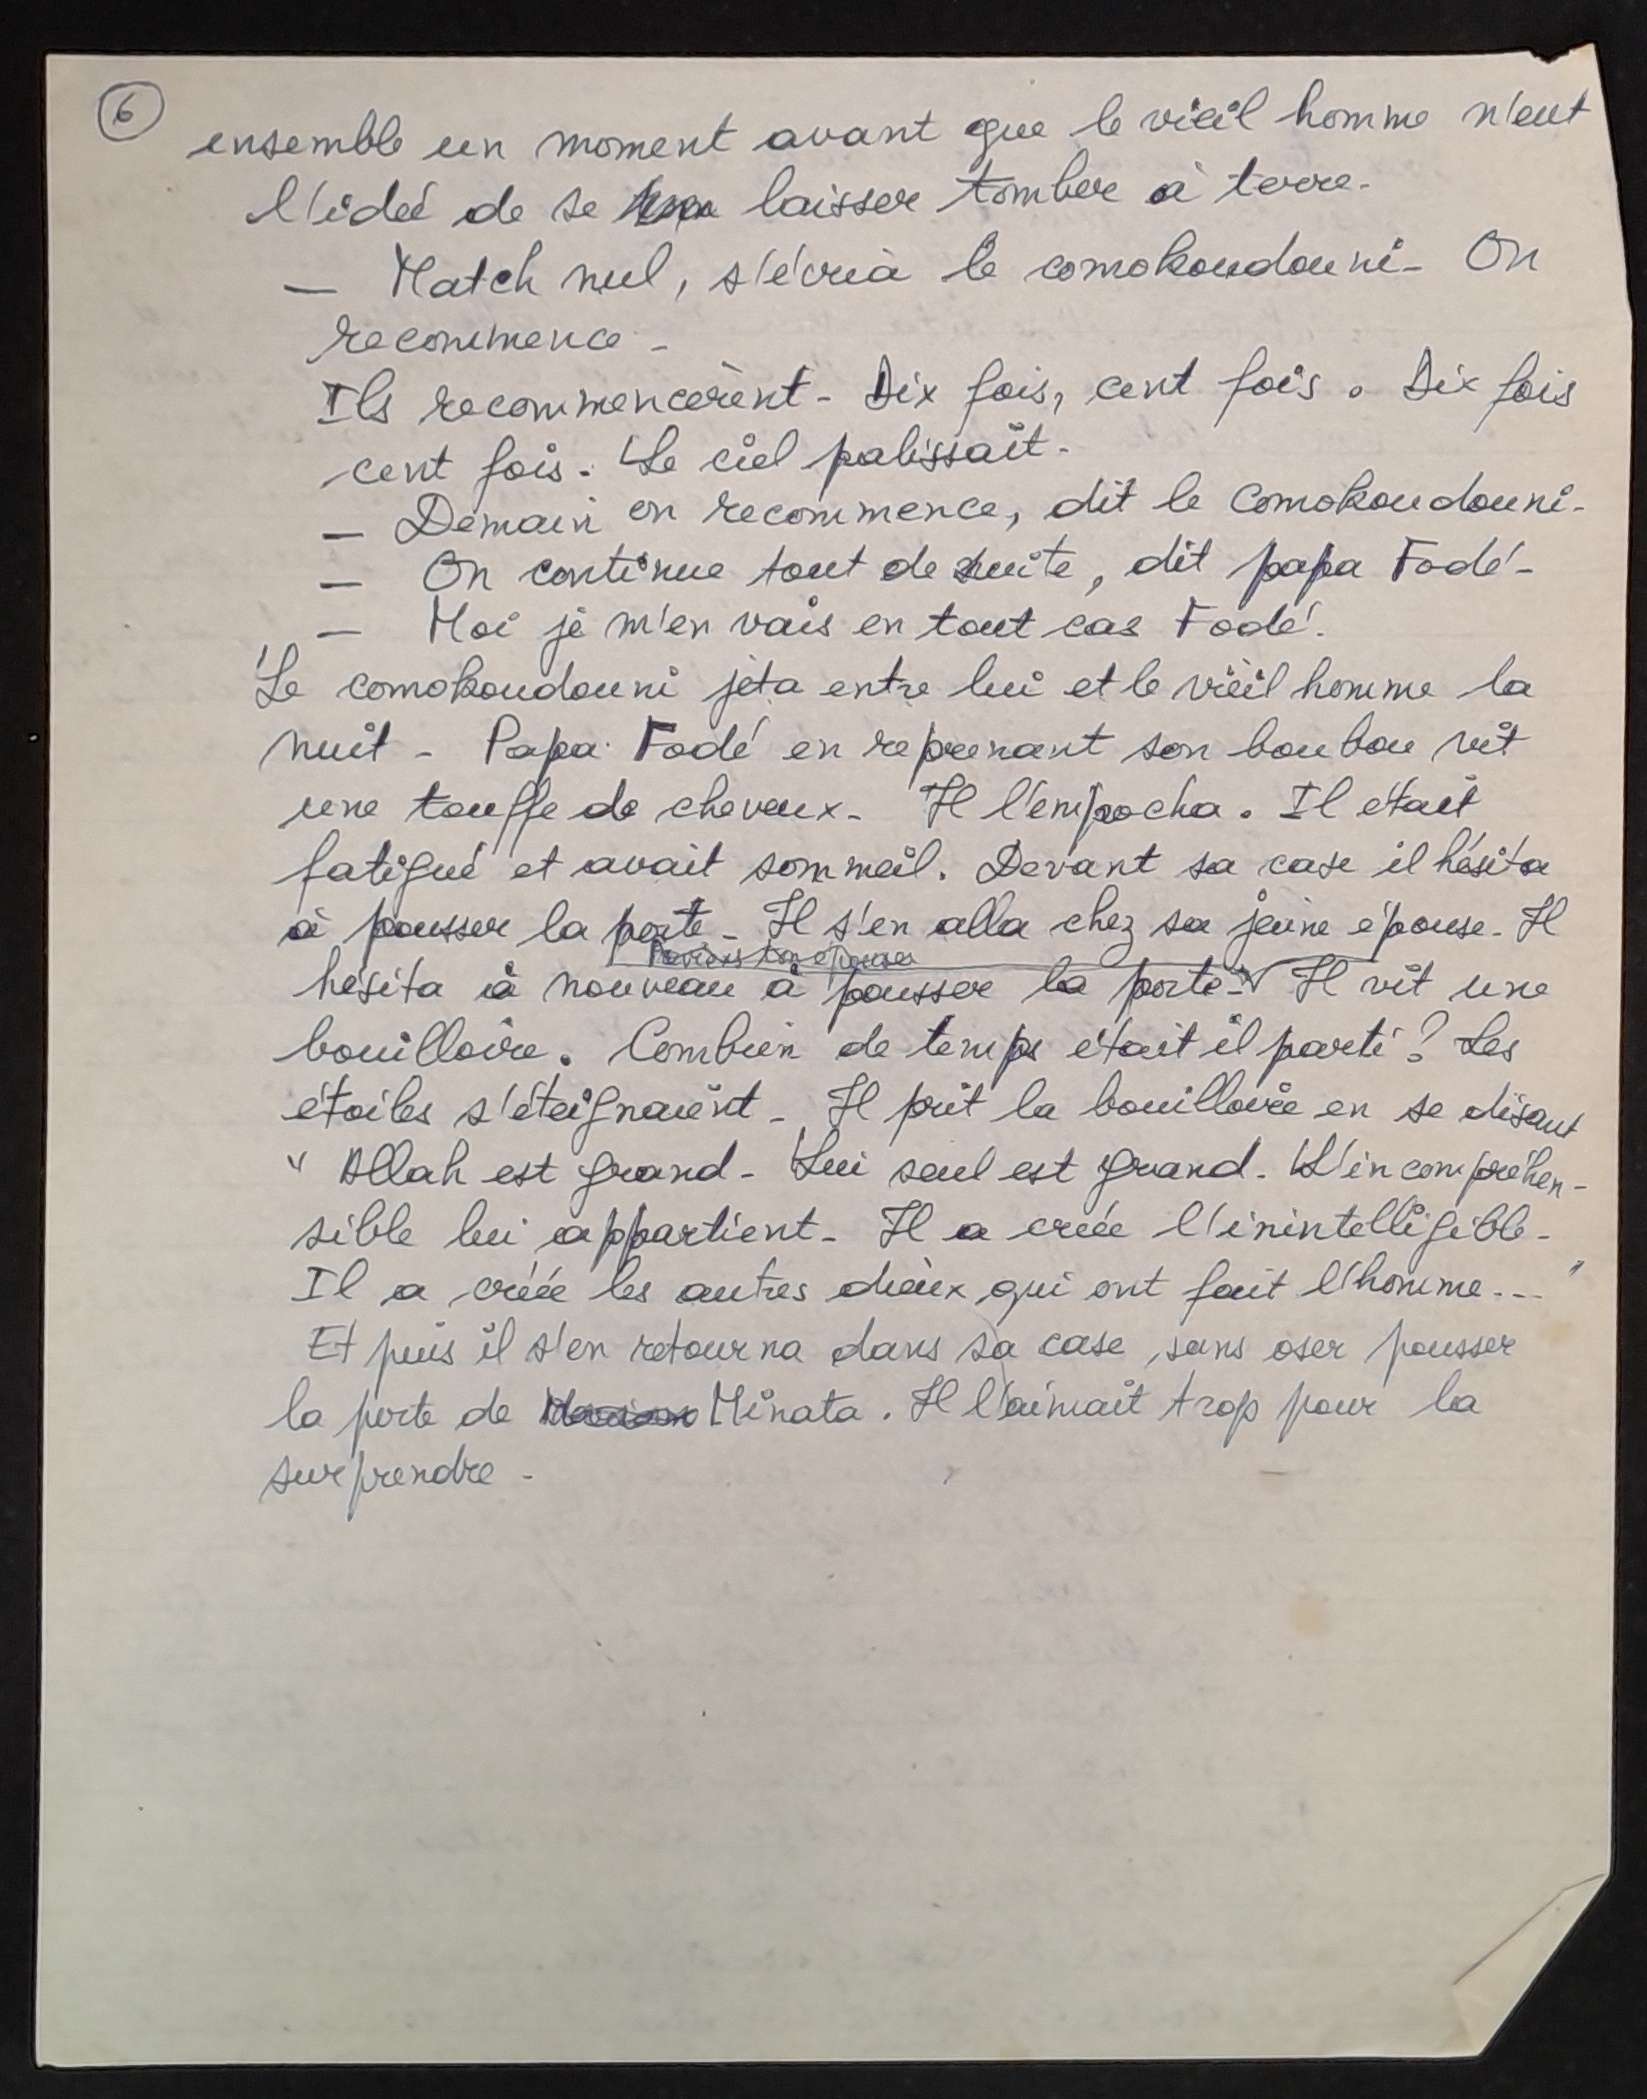 6
ensemble un moment avant que le vieil homme n'eut
l'idée de se laisser tomber à terre.
— Match nul, s'écria le comokoudouni. On
recommence.
Ils recommencèrent. Dix fois, cent fois. Dix fois
cent fois. Le ciel palissait.
— Demain on recommence, dit le comokoudouni.
— On continue tout de suite, dit papa Fodé.
— Moi je m'en vais en tout cas Fodé.
Le comokoudouni jeta entre lui et le vieil homme la
nuit. Papa Fodé en reprenant son boubou vit
une touffe de cheveux. Il l'empocha. Il était
fatigué et avait sommeil. Devant sa case il hésita
à pousser la porte. Il s'en alla chez sa jeune épouse. Il
hésita à nouveau à pousser la porte. Il vit une
bouilloire. Combien de temps était il parti ? Les
étoiles s'éteignaient. Il prit la bouilloire en se disant
" Allah est grand. Lui seul est grand. L'incompréhen-
sible lui appartient. Il a créé l'inintelligible.
Il a créée les autres dieux qui ont fait l'homme... "
Et puis il s'en retourna dans sa case, sans oser pousser
la porte de Minata. Il l'aimait trop pour la
surprendre.